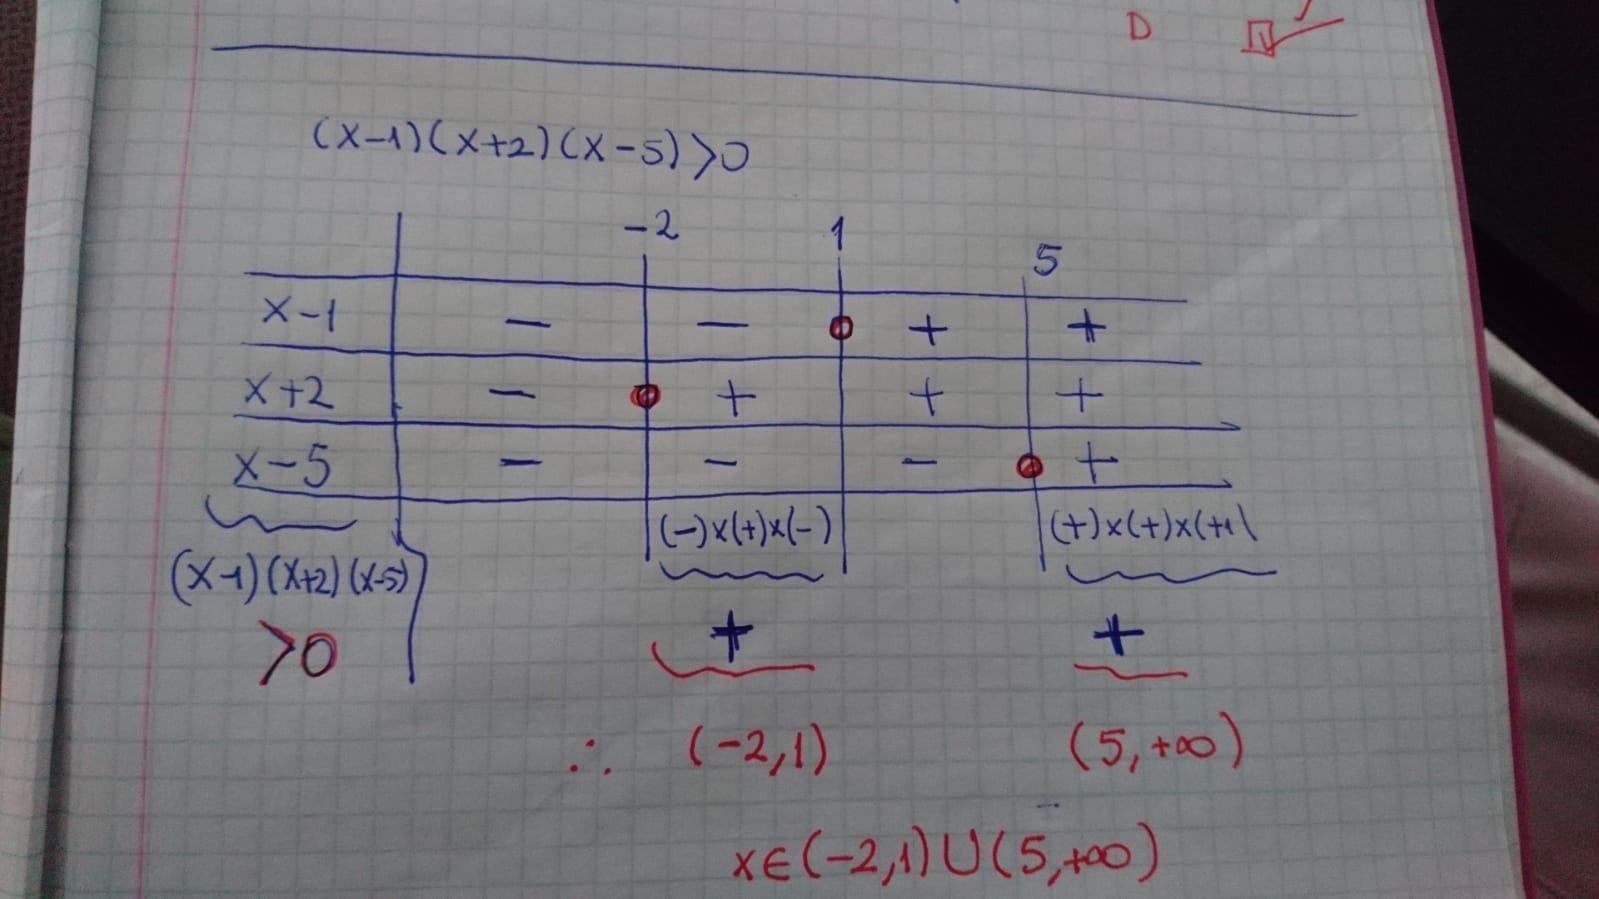 D
(x-1)(x+2)(x-5)>0
-2 1 5
x-1 - - + +
x+2 - + + +
x-5 - - - +
(-)x(+)x(-) (+)x(+)x(+)
(x-1)(x+2)(x-5)
>0 + +
∴ (-2,1) (5,+∞)
x∈(-2,1)∪(5,+∞)